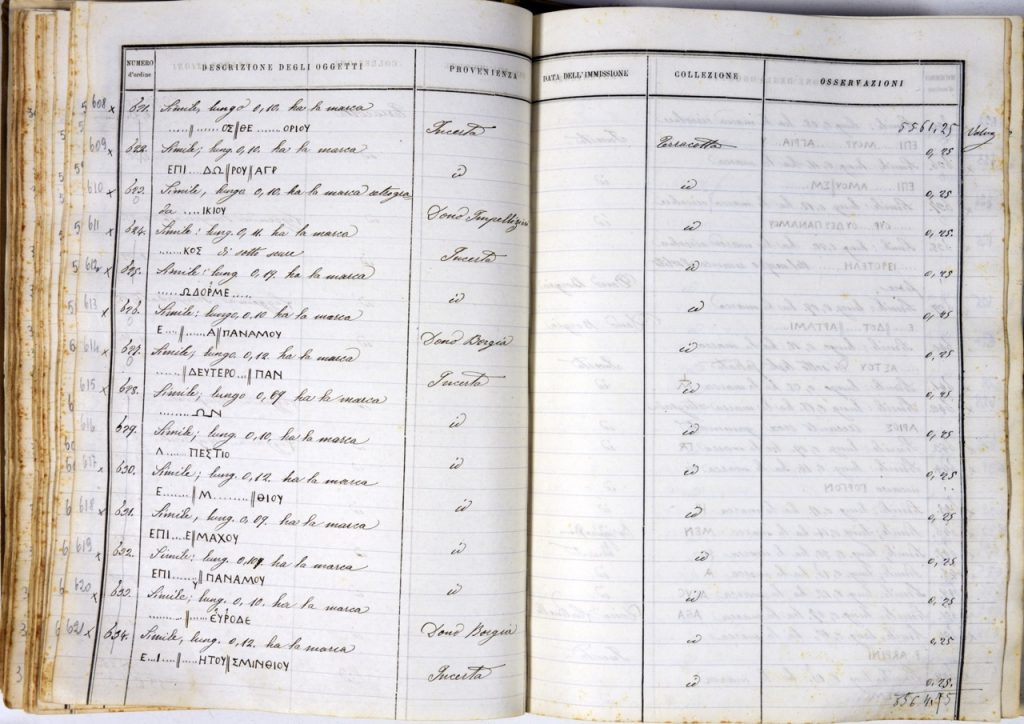 NUMERO d'ordine DESCRIZIONE DEGLI OGGETTI PROVENIENZA DATA DELL'IMMISSIONE COLLEZIONE OSSERVAZIONI
5561,25
608 x 621. Simile, lungo 0,10. ha la marca
........||......ΟΣ||ΘΕ .......ΟΡΙΟΥ Incerta Terracotta 0,25
609 x 622. Simile; lung. 0,10. ha la marca
ΕΠΙ....ΔΩ||ΡΟΥ||ΑΓΡ id id 0,25
610 x 623. Simile, lungo 0,10. ha la marca retrogra
da ....ΙΚΙΟΥ Dono id 0,25.
611 x 624. Simile: lung. 0,11. ha la marca
......ΚΟΣ di sotto Incerta id 0,25
612 x 625. Simile: lung. 0,09. ha la marca
.....ΩΔΟΡΜΕ..... id id 0,25
613 x 626. Simile; lungo, 0,10. ha la marca
Ε......||......Α||ΠΑΝΑΜΟΥ Dono Borgia id 0,25
614 x 627. Simile, lungo. 0,12. ha la marca
......||ΔΕΥΤΕΡΟ...||ΠΑΝ Incerta id 0,25
615 x 628. Simile; lungo 0,09 ha la marca
........ΩΝ id id 0,25
616 629. Simile; lung. 0,10. ha la marca
Λ.... ΠΕΣΤΙΟ id id 0,25
617 x 630. Simile; lung. 0,12. ha la marca
Ε.......||Μ.........||ΘΙΟΥ id id 0,25
618 x 631. Simile, lung. 0,09. ha la marca
ΕΠΙ....ΕΜΑΧΟΥ id id 0,25
619 x 632. Simile; lung. 0,10. ha la marca
ΕΠΙ.......||ΠΑΝΑΜΟΥ id id 0,25
620 x 633. Simile; lung. 0,10. ha la marca
.........||.....ΕΥΡΟΔΕ Dono Borgia id 0,25
621 x 634. Simile, lung. 0,12. ha la marca
Ε...Ι....||......ΗΤΟΥ||ΣΜΙΝΘΙΟΥ Incerta id 0,25.